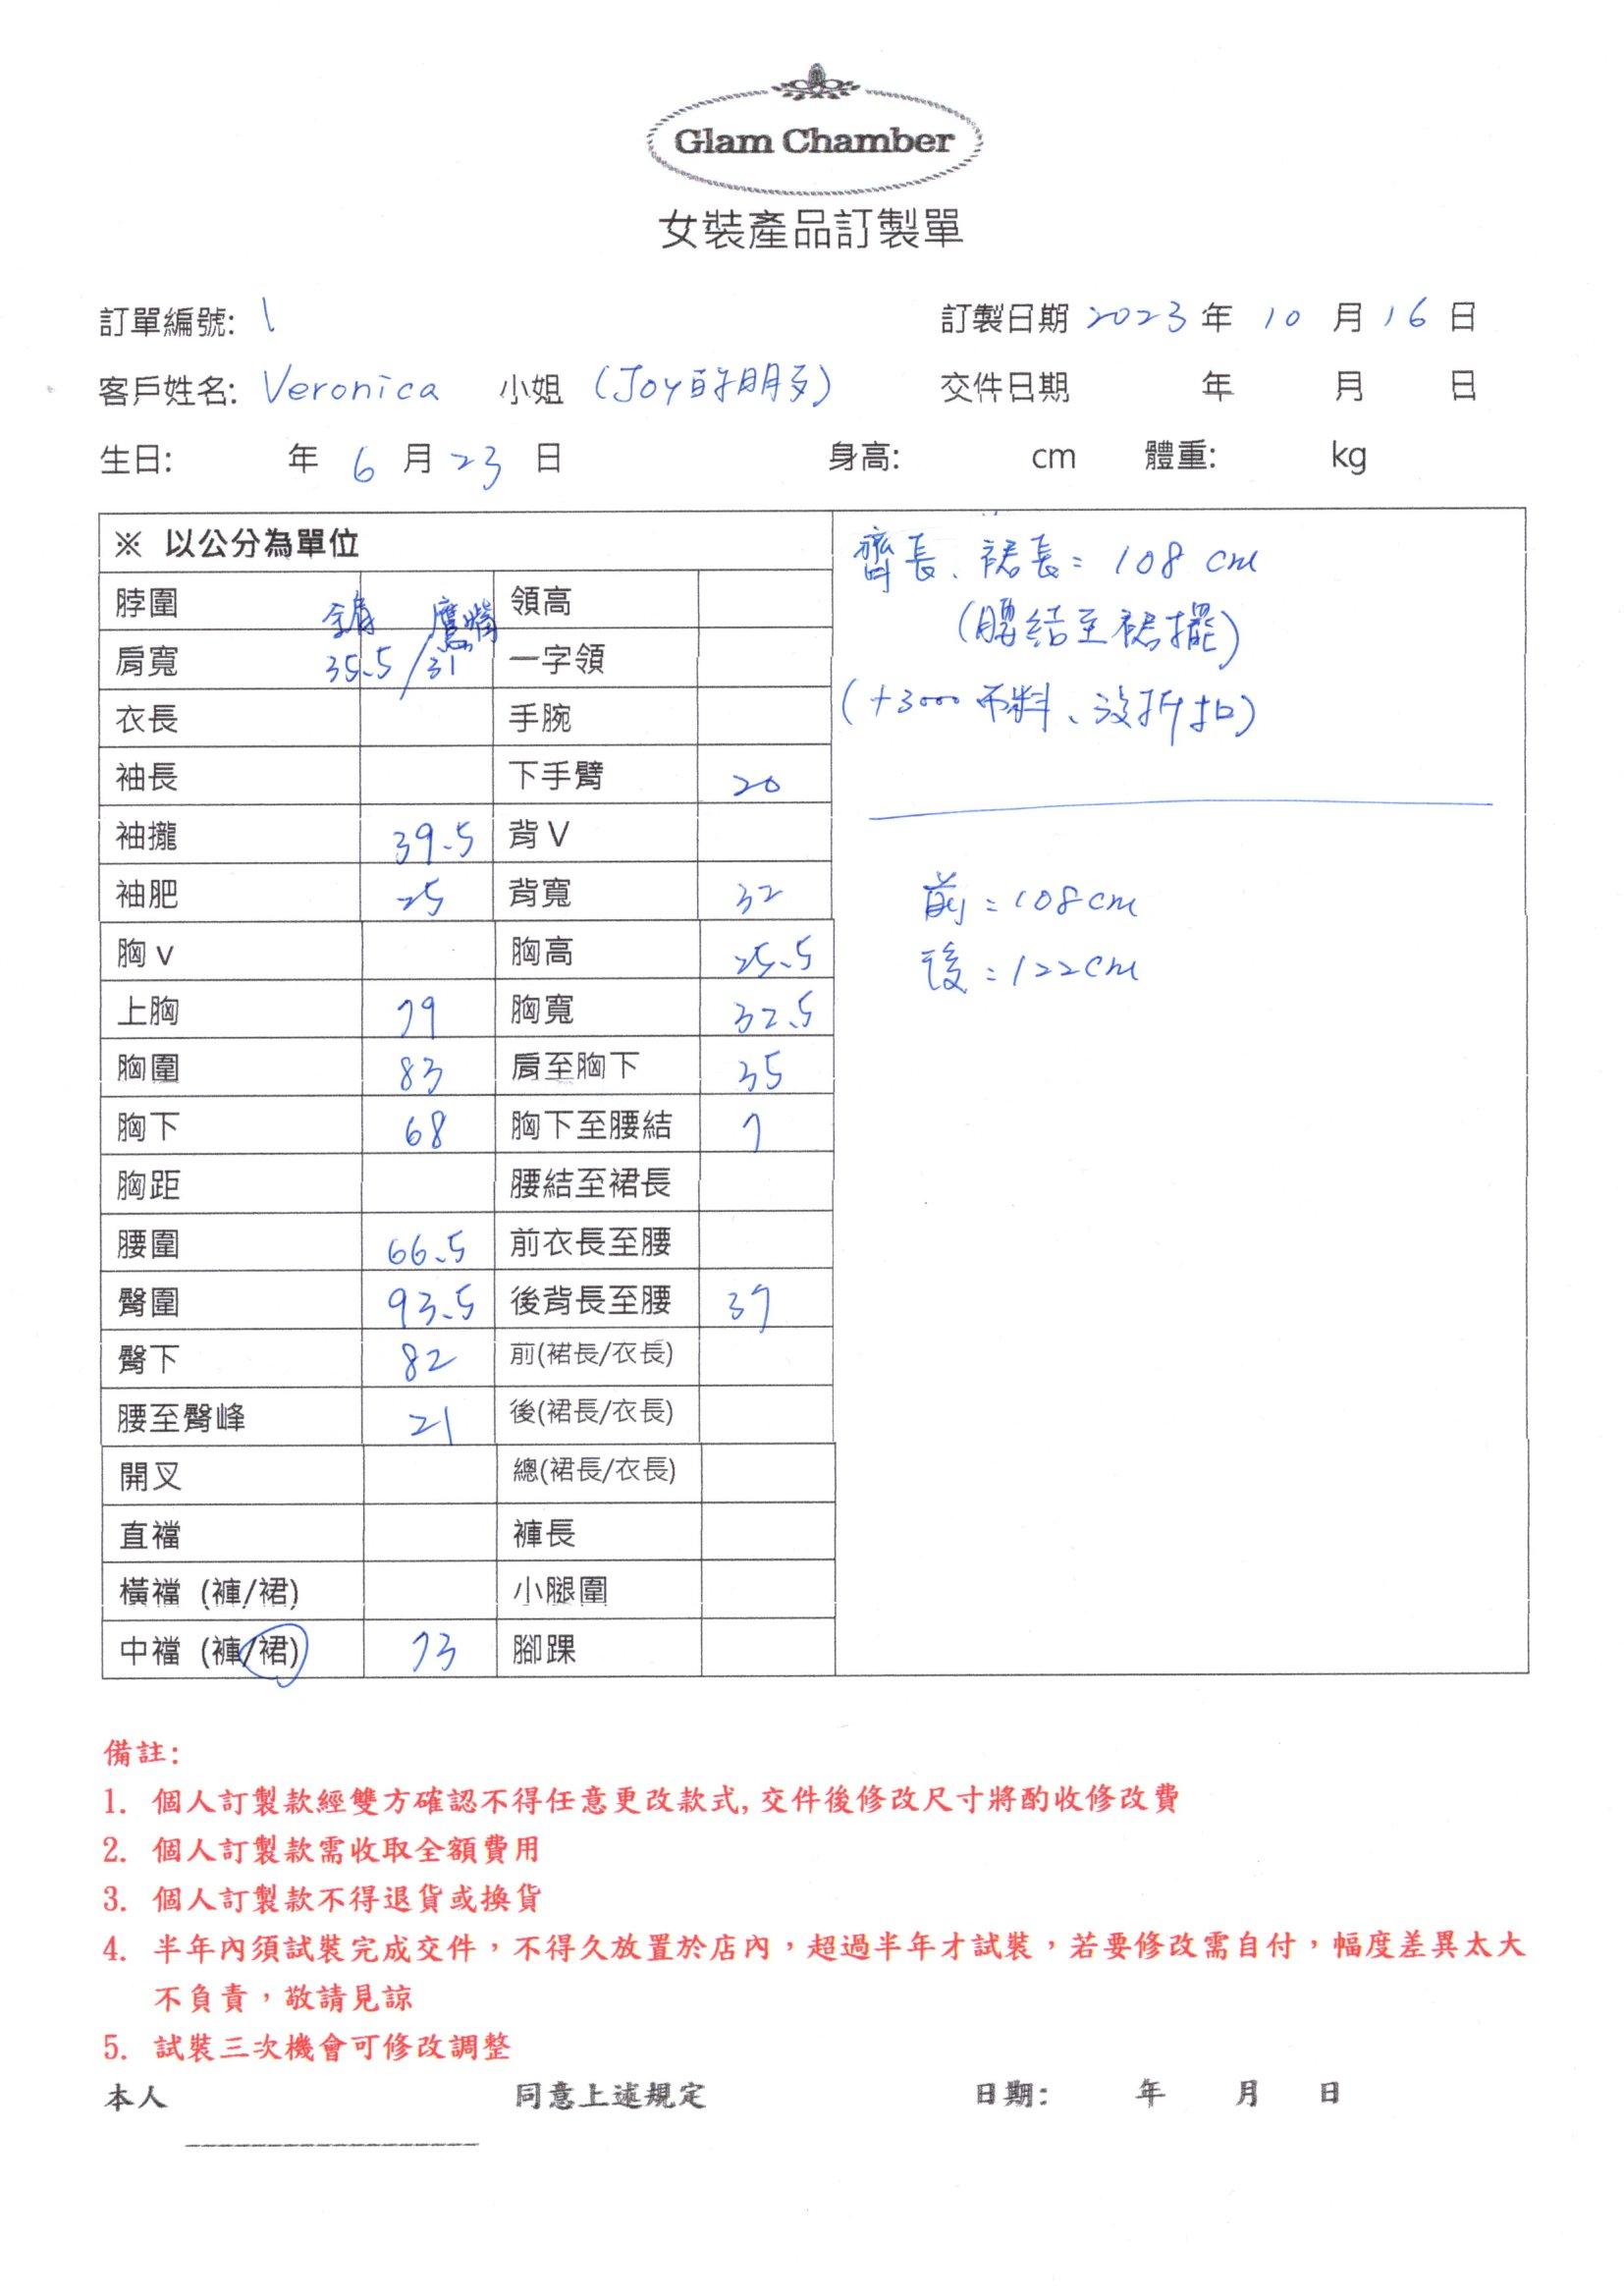 Glam Chamber
女裝產品訂製單
訂單編號: 1 訂製日期 2023 年 10 月 16 日
客戶姓名: Veronica 小姐 (Joy的朋友) 交件日期 年 月 日
生日: 年 6 月 23 日 身高: cm 體重: kg
※ 以公分為單位
脖圍 領高
全肩 鷹嘴
肩寬 35.5 / 31 一字領
衣長 手腕
袖長 下手臂 20
袖攏 39.5 背V
袖肥 25 背寬 32
胸v 胸高 25.5
上胸 79 胸寬 32.5
胸圍 83 肩至胸下 35
胸下 68 胸下至腰結 7
胸距 腰結至裙長
腰圍 66.5 前衣長至腰
臀圍 93.5 後背長至腰 37
臀下 82 前(裙長/衣長)
腰至臀峰 21 後(裙長/衣長)
開叉 總(裙長/衣長)
直襠 褲長
橫襠 (褲/裙) 小腿圍
中襠 (褲/裙) 73 腳踝
齊長、裙長: 108 cm
(腰結至裙擺)
(+3000 布料、沒折扣)
前: 108cm
後: 122cm
備註:
1. 個人訂製款經雙方確認不得任意更改款式, 交件後修改尺寸將酌收修改費
2. 個人訂製款需收取全額費用
3. 個人訂製款不得退貨或換貨
4. 半年內須試裝完成交件,不得久放置於店內,超過半年才試裝,若要修改需自付,幅度差異太大
不負責,敬請見諒
5. 試裝三次機會可修改調整
本人 同意上述規定 日期: 年 月 日